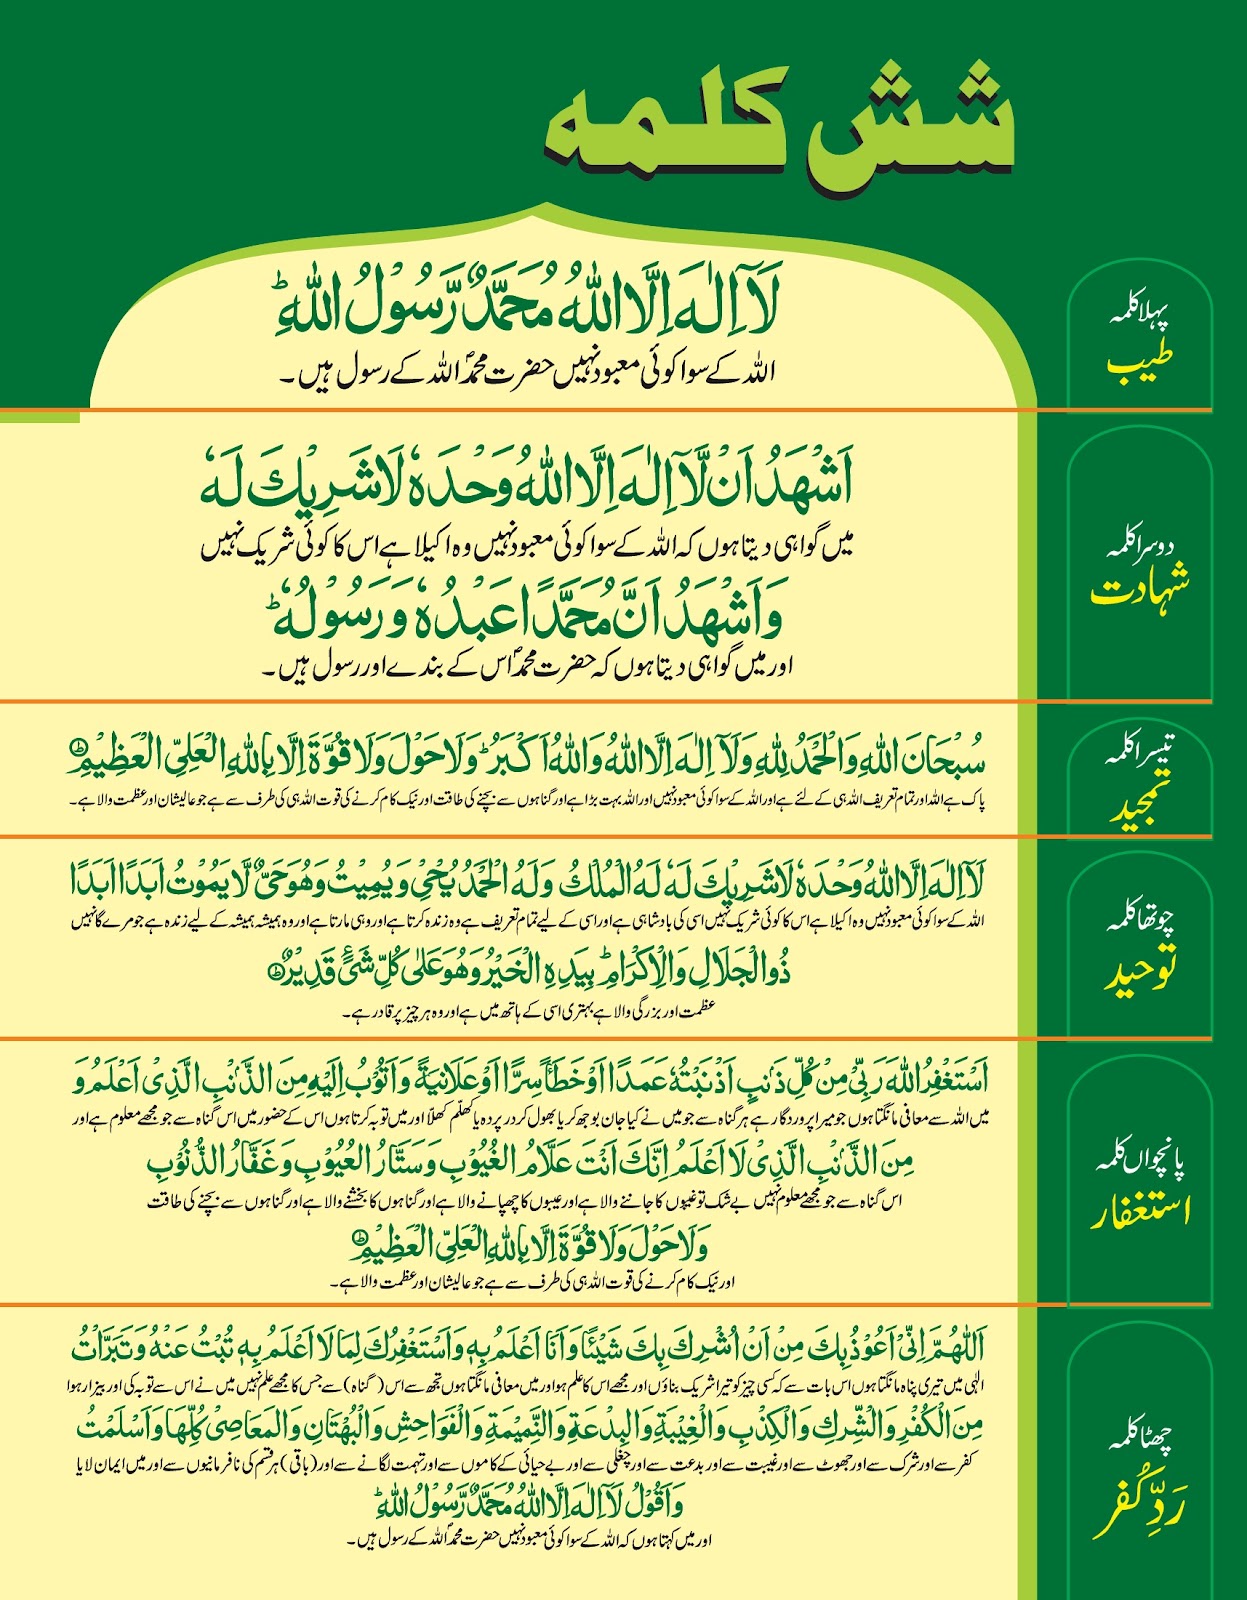 شش کلمہ
پہلا کلمہ
طیب
لَآ اِلٰهَ اِلَّا اللّٰهُ مُحَمَّدٌ رَّسُوْلُ اللّٰهِؕ
اللہ کے سوا کوئی معبود نہیں حضرت محمدؐ اللہ کے رسول ہیں۔
دوسرا کلمہ
شہادت
اَشْهَدُ اَنْ لَّآ اِلٰهَ اِلَّا اللّٰهُ وَحْدَهٗ لَا شَرِيْكَ لَهٗ
میں گواہی دیتا ہوں کہ اللہ کے سوا کوئی معبود نہیں وہ اکیلا ہے اس کا کوئی شریک نہیں
وَاَشْهَدُ اَنَّ مُحَمَّدًا عَبْدُهٗ وَرَسُوْلُهٗؕ
اور میں گواہی دیتا ہوں کہ حضرت محمدؐ اس کے بندے اور رسول ہیں۔
تیسرا کلمہ
تمجید
سُبْحَانَ اللّٰهِ وَالْحَمْدُ لِلّٰهِ وَلَآ اِلٰهَ اِلَّا اللّٰهُ وَاللّٰهُ اَكْبَرُؕ وَلَا حَوْلَ وَلَا قُوَّةَ اِلَّا بِاللّٰهِ الْعَلِيِّ الْعَظِيْمِؕ
پاک ہے اللہ اور تمام تعریف اللہ ہی کے لئے ہے اور اللہ کے سوا کوئی معبود نہیں اور اللہ بہت بڑا ہے اور گناہوں سے بچنے کی طاقت اور نیک کام کرنے کی قوت اللہ ہی کی طرف سے ہے جو عالیشان اور عظمت والا ہے۔
چوتھا کلمہ
توحید
لَآ اِلٰهَ اِلَّا اللّٰهُ وَحْدَهٗ لَا شَرِيْكَ لَهٗ لَهُ الْمُلْكُ وَلَهُ الْحَمْدُ يُحْيٖ وَيُمِيْتُ وَهُوَ حَيٌّ لَّا يَمُوْتُ اَبَدًا اَبَدًا
اللہ کے سوا کوئی معبود نہیں وہ اکیلا ہے اس کا کوئی شریک نہیں اسی کی بادشاہی ہے اور اسی کے لیے تمام تعریف ہے وہ زندہ کرتا ہے اور وہی مارتا ہے اور وہ ہمیشہ ہمیشہ کے لیے زندہ ہے جو مرے گا نہیں
ذُوالْجَلَالِ وَالْاِكْرَامِؕ بِيَدِهِ الْخَيْرُ وَهُوَ عَلٰى كُلِّ شَيْءٍ قَدِيْرٌؕ
عظمت اور بزرگی والا ہے بہتری اسی کے ہاتھ میں ہے اور وہ ہر چیز پر قادر ہے۔
پانچواں کلمہ
استغفار
اَسْتَغْفِرُ اللّٰهَ رَبِّيْ مِنْ كُلِّ ذَنْبٍ اَذْنَبْتُهٗ عَمَدًا اَوْ خَطَأً سِرًّا اَوْ عَلَانِيَةً وَّاَتُوْبُ اِلَيْهِ مِنَ الذَّنْبِ الَّذِيْ اَعْلَمُ وَ
میں اللہ سے معافی مانگتا ہوں جو میرا پروردگار ہے ہر گناہ سے جو میں نے کیا جان بوجھ کر یا بھول کر در پردہ یا کھلّم کھلّا اور میں توبہ کرتا ہوں اس کے حضور میں اس گناہ سے جو مجھے معلوم ہے اور
مِنَ الذَّنْبِ الَّذِيْ لَا اَعْلَمُ اِنَّكَ اَنْتَ عَلَّامُ الْغُيُوْبِ وَسَتَّارُ الْعُيُوْبِ وَغَفَّارُ الذُّنُوْبِ
اس گناہ سے جو مجھے معلوم نہیں بے شک تو غیبوں کا جاننے والا ہے اور عیبوں کا چھپانے والا ہے اور گناہوں کا بخشنے والا ہے اور گناہوں سے بچنے کی طاقت
وَلَا حَوْلَ وَلَا قُوَّةَ اِلَّا بِاللّٰهِ الْعَلِيِّ الْعَظِيْمِؕ
اور نیک کام کرنے کی قوت اللہ ہی کی طرف سے ہے جو عالیشان اور عظمت والا ہے۔
چھٹا کلمہ
رَدِّ کُفر
اَللّٰهُمَّ اِنِّيْ اَعُوْذُ بِكَ مِنْ اَنْ اُشْرِكَ بِكَ شَيْئًا وَّاَنَا اَعْلَمُ بِهٖ وَاَسْتَغْفِرُكَ لِمَا لَا اَعْلَمُ بِهٖ تُبْتُ عَنْهُ وَتَبَرَّاْتُ
الٰہی میں تیری پناہ مانگتا ہوں اس بات سے کہ کسی چیز کو تیرا شریک بناؤں اور مجھے اس کا علم ہو اور میں معافی مانگتا ہوں تجھ سے اس (گناہ) سے جس کا مجھے علم نہیں میں نے اس سے توبہ کی اور بیزار ہوا
مِنَ الْكُفْرِ وَالشِّرْكِ وَالْكِذْبِ وَالْغِيْبَةِ وَالْبِدْعَةِ وَالنَّمِيْمَةِ وَالْفَوَاحِشِ وَالْبُهْتَانِ وَالْمَعَاصِيْ كُلِّهَا وَاَسْلَمْتُ
کفر سے اور شرک سے اور جھوٹ سے اور غیبت سے اور بدعت سے اور چغلی سے اور بے حیائی کے کاموں سے اور تہمت لگانے سے اور (باقی) ہر قسم کی نافرمانیوں سے اور میں ایمان لایا
وَاَقُوْلُ لَآ اِلٰهَ اِلَّا اللّٰهُ مُحَمَّدٌ رَّسُوْلُ اللّٰهِؕ
اور میں کہتا ہوں کہ اللہ کے سوا کوئی معبود نہیں حضرت محمدؐ اللہ کے رسول ہیں۔